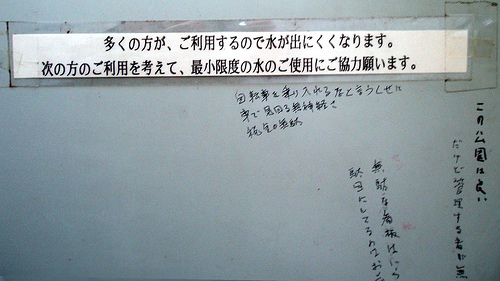 多くの方が、ご利用するので水が出にくくなります。
次の方のご利用を考えて、最小限度の水のご使用にご協力願います。
自転車を乗り入れるなと言うくせに
車で見回る無神経さ
税金の無駄
この公園は良い
だけど管理する者が無
無駄な看板は